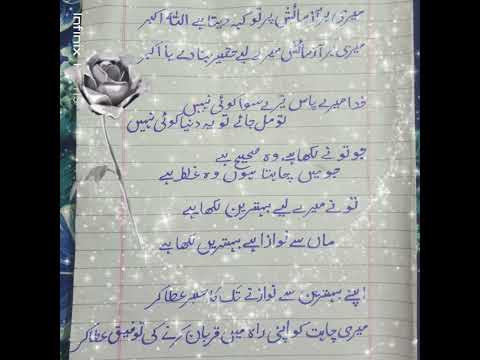 میری ہر آزمائش پر تو کہہ دیتا ہے اللہ اکبر
میری ہر آزمائش میرے لیے حقیر بنا دے یا اکبر
خدا میرے پاس تیرے سوا کوئی نہیں
تو مل جائے تو یہ دنیا کوئی نہیں
جو تو نے لکھا ہے وہ صحیح ہے
جو میں چاہتا ہوں وہ غلط ہے
تو نے میرے لیے بہترین لکھا ہے
ماں سے نوازا ہے بہترین لکھا ہے
اپنے بہترین سے نوازنے تک کا صبر عطا کر
میری چاہت کو اپنی راہ میں قربان کرنے کی توفیق عطا کر
Infinix